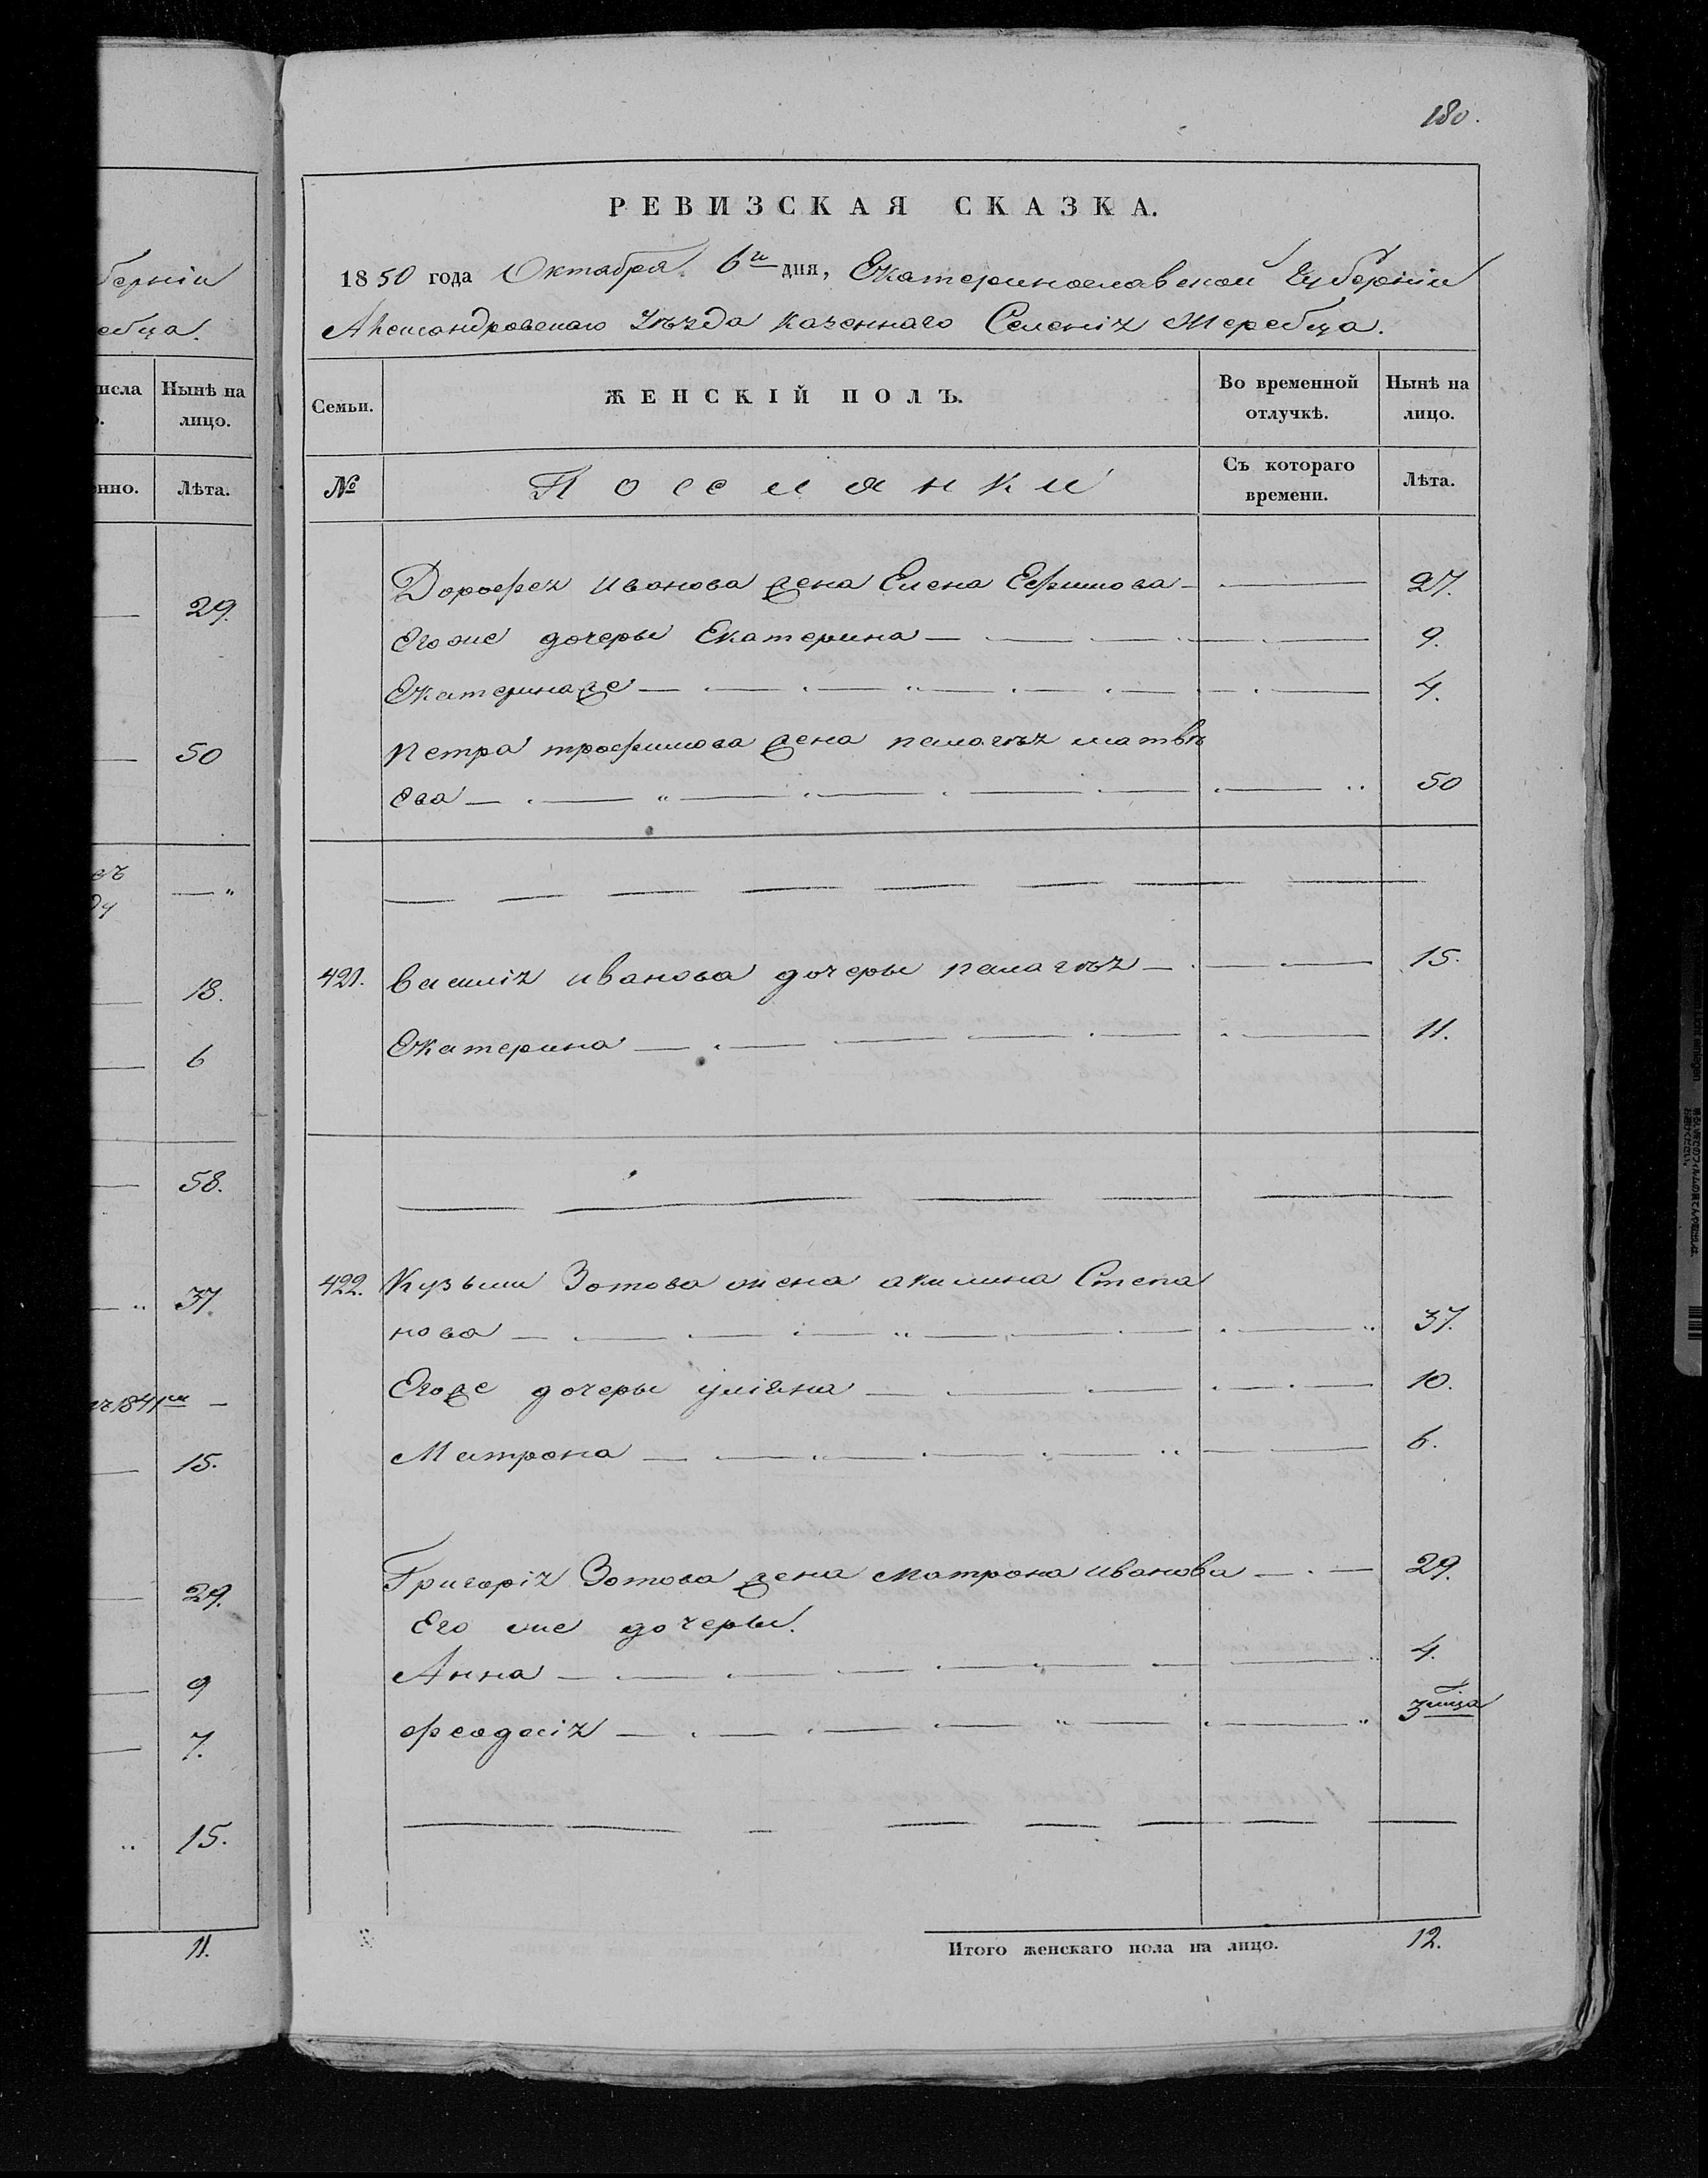 180.
РЕВИЗСКАЯ СКАЗКА.
1850 года Октабря 6го дня, Екатеринославской Губерніи
Александровскаго Уѣзда Казеннаго Селенія Жеребца.
Семьи.
ЖЕНСКІЙ ПОЛЪ.
Во временной отлучкѣ.
Нынѣ на лицо.
№
Поселянки
Съ котораго времени.
Лѣта.
Дорофея Иванова жена Елена Ефимова — 27.
Его же дочеры Екатерина — 9.
Екатерина же — 4.
Петра трофимова жена пелагѣя матвѣ
ева — 50
421. василія иванова дочеры пелагѣя — 15.
Екатерина — 11.
422. Кузьми Зотова жена акилина Степа
нова — 37.
Егоже дочеры уліяна — 10.
Матрона — 6.
Григорія Зотова жена матрона иванова — 29.
Его же дочеры.
Анна — 4.
феодосія — 3 мца
Итого женскаго пола на лицо. 12.
берніи
ебца.
исла
Нынѣ на
лицо.
енно.
Лѣта.
29.
50
18.
6
58.
37.
1841
15.
29.
9
7.
15.
11.